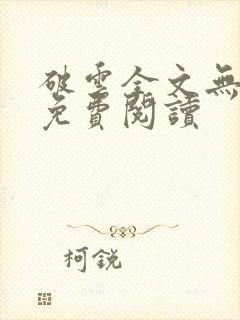 破雲全文無
免費閱讀
柯銳